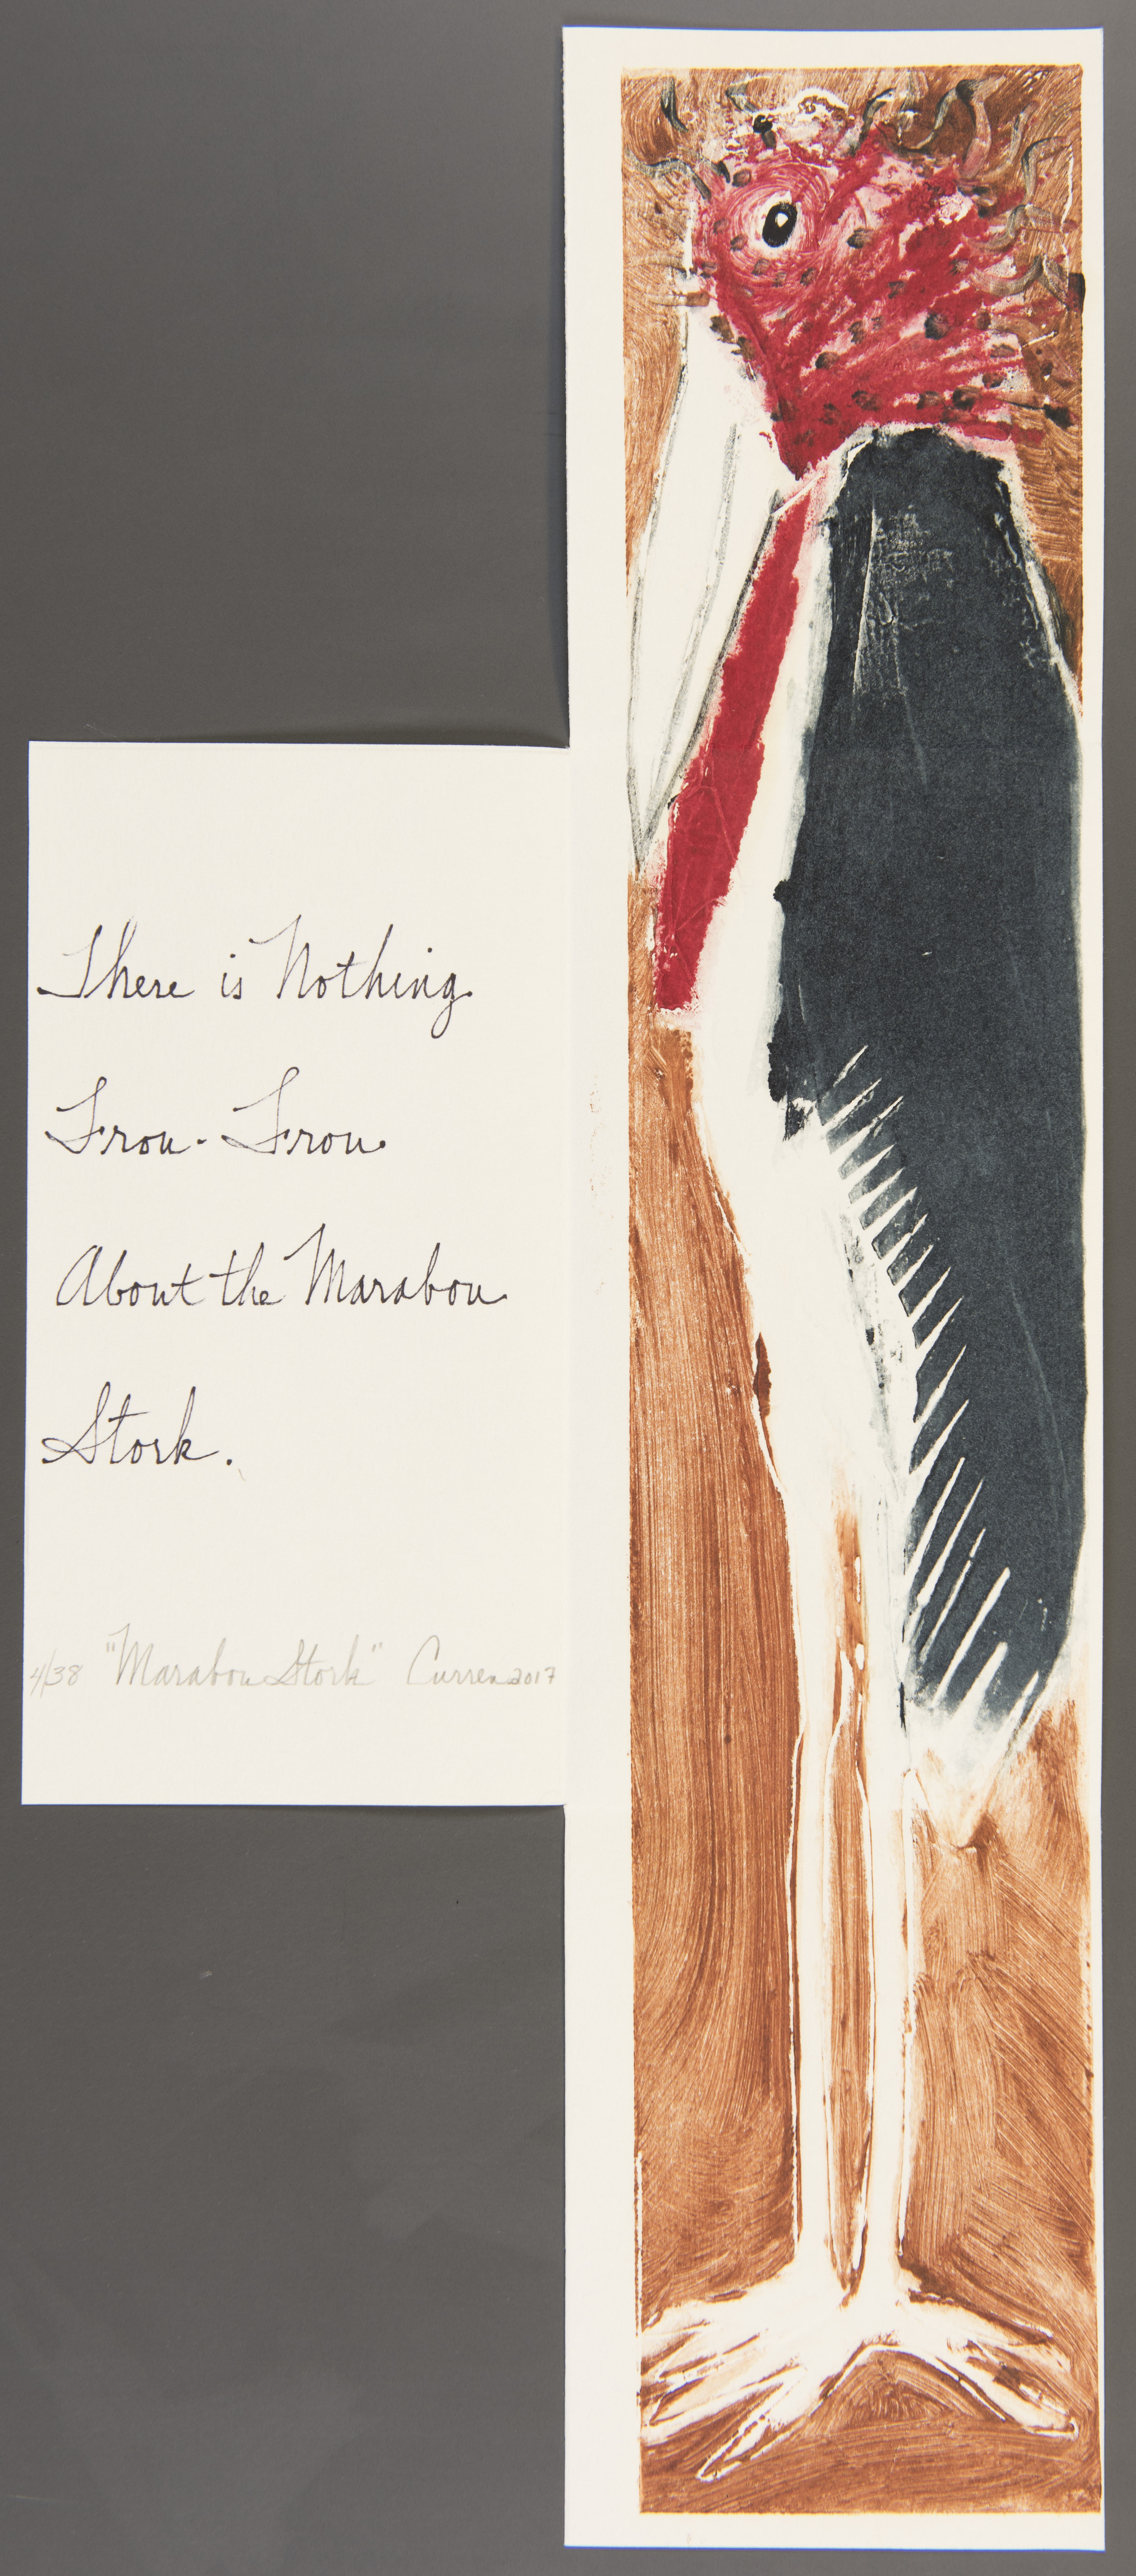 There is Nothing
Frou-Frou
About the Marabou
Stork.
4/38 "Marabou Stork" Curren 2017